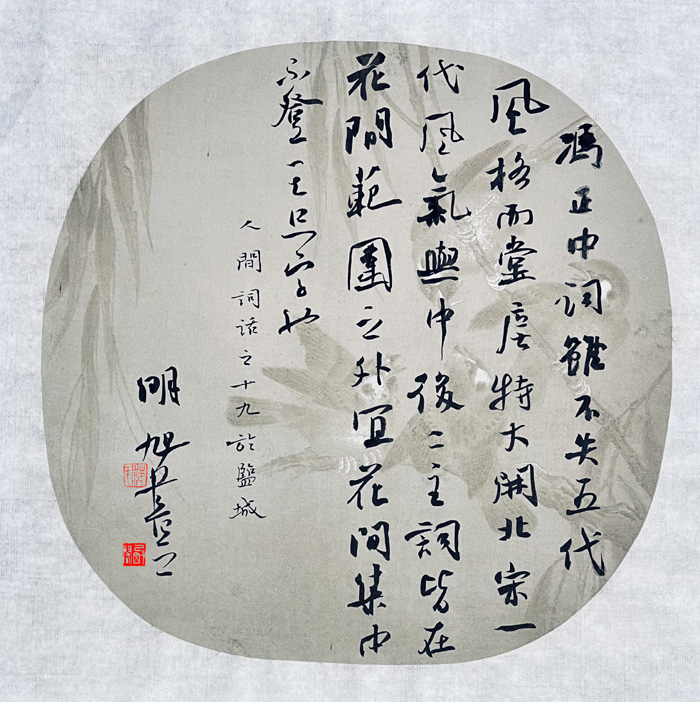 馮正中词雖不失五代
風格而堂廡特大開北宋一
代風氣與中後二主詞皆在
花間範圍之外宜花间集中
不登其只字也
人間詞話之十九於鹽城
明旭